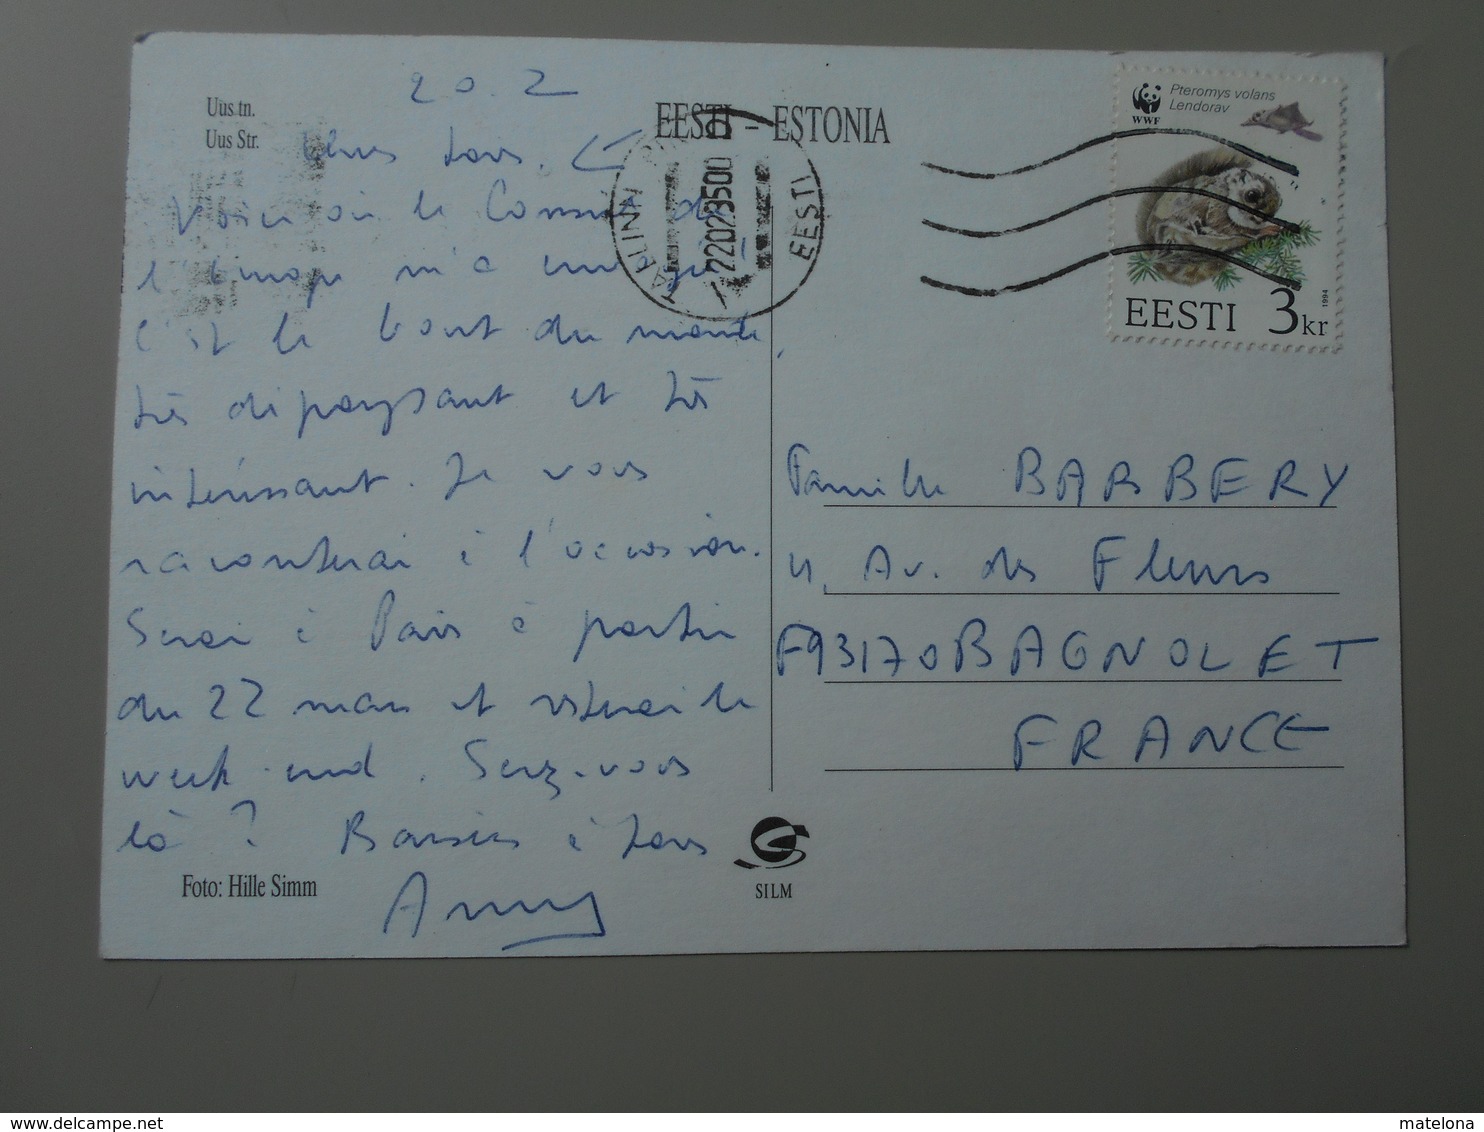 Uus tn.
Uus Str.
20.2
EESTI - ESTONIA
Chers tous.
Voici où le Conseil de
l'Europe m'a envoyé!
C'est le bout du monde,
très dépaysant et très
intéressant. Je vous
raconterai à l'occasion.
Serai à Paris à partir
du 22 mars et resterai le
week-end. Serez-vous
là ? Baisers à tous
Anny
Foto: Hille Simm
SILM
TALLINN
22029500
EESTI
WWF
Pteromys volans
Lendorav
EESTI 3kr
1994
Famille BARBERY
4, Av. des Fleurs
F93170 BAGNOLET
FRANCE
www.delcampe.net
matelona